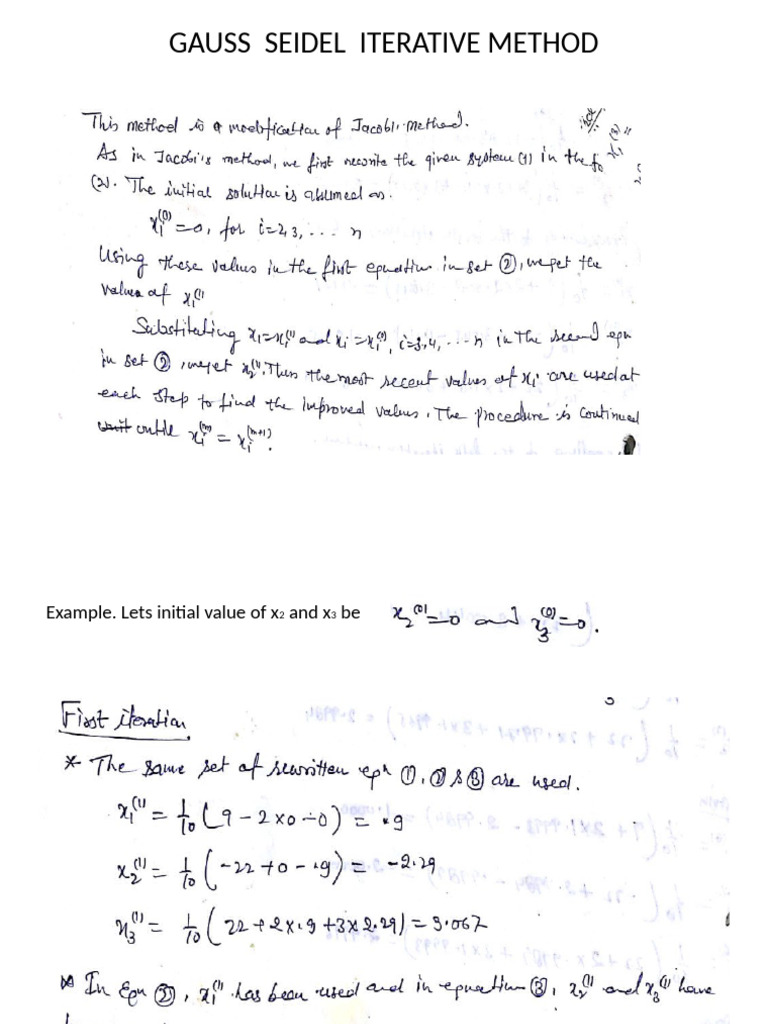 GAUSS SEIDEL ITERATIVE METHOD
This method is a modification of Jacobi's method.
As in Jacobi's method, we first rewrite the given system (1) in the fo
(2). The initial solution is assumed as.
xᵢ⁽⁰⁾ = 0, for i=2,3, ... n
Using these values in the first equation in set ②, we get the
values of x₁⁽¹⁾
Substituting x₁=x₁⁽¹⁾ and xᵢ=xᵢ⁽⁰⁾, i=3,4, ... n in the second eqn
in set ②, we get x₂⁽¹⁾. Thus the most recent values of xᵢ are used at
each step to find the improved values. The procedure is continued
until xᵢ⁽ᵐ⁾ = xᵢ⁽ᵐ⁺¹⁾.
Example. Lets initial value of x₂ and x₃ be x₂⁽⁰⁾=0 and x₃⁽⁰⁾=0.
First iteration
* The same set of rewritten eqn ①, ② & ③ are used.
x₁⁽¹⁾ = 1/10 (9 - 2×0 - 0) = .9
x₂⁽¹⁾ = 1/10 (-22 + 0 - .9) = -2.29
x₃⁽¹⁾ = 1/10 (22 + 2×.9 + 3×2.29) = 3.067
* In Eqn ②, x₁⁽¹⁾ has been used and in equation ③, x₂⁽¹⁾ and x₃⁽¹⁾ have